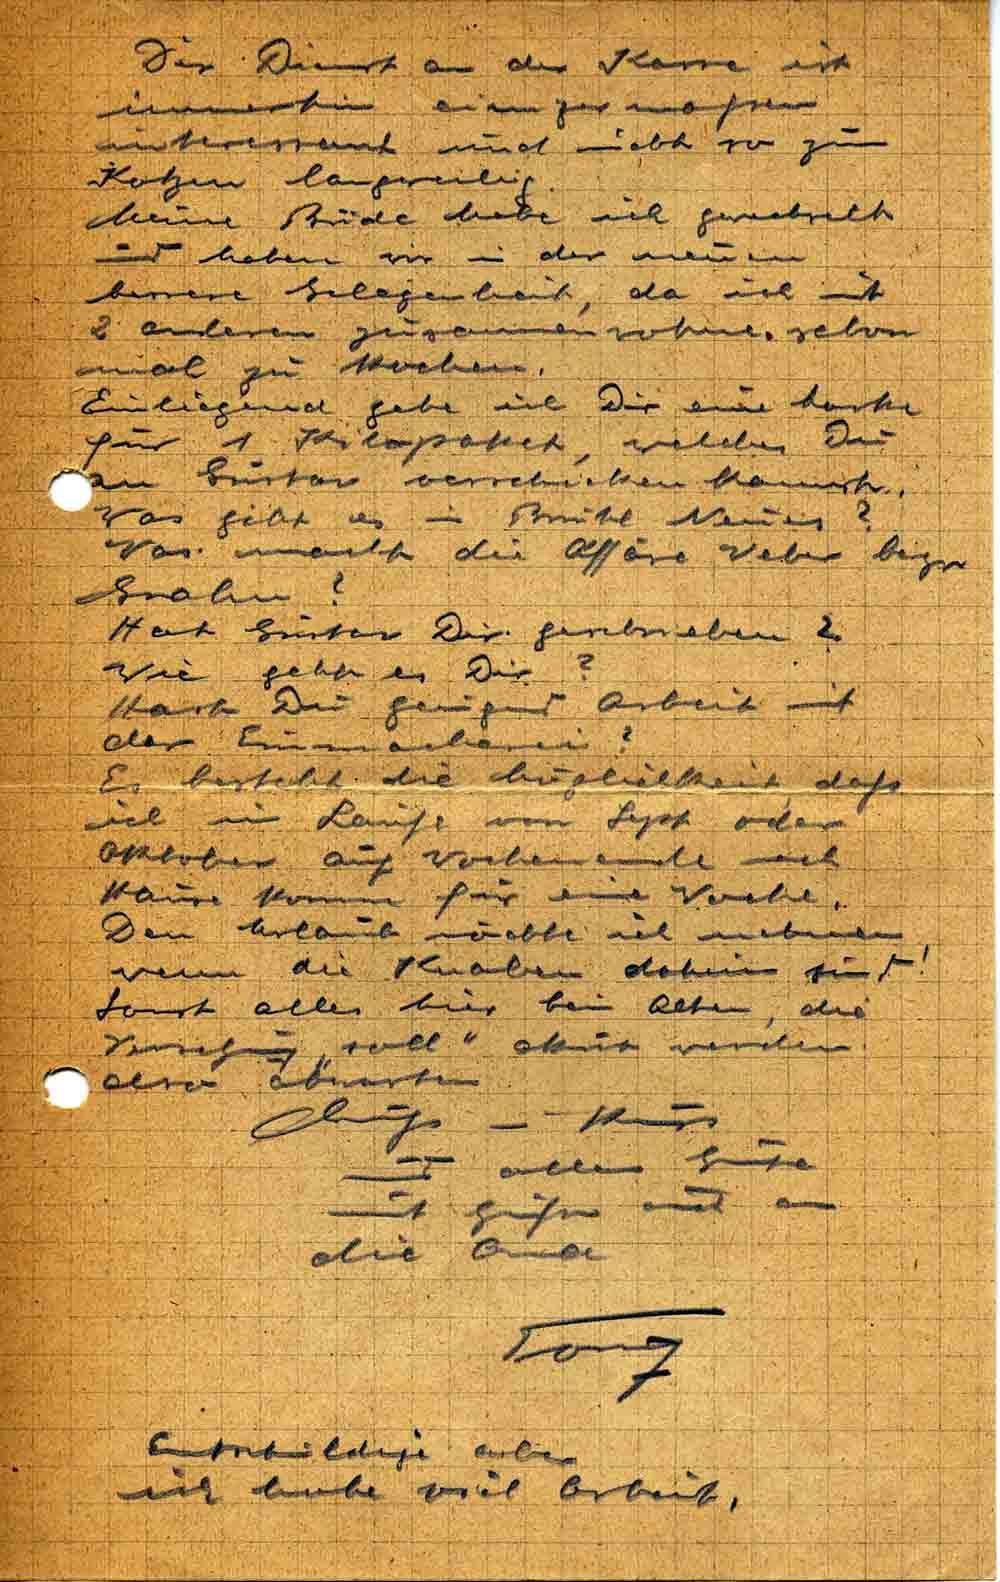 Der Dienst an der Kasse ist
immerhin einigermaßen
interessant und nicht so zum
Kotzen langweilig.
Meine Bude habe ich gewechselt
und haben wir in der neuen
bessere Gelegenheit, da ich mit
2 anderen zusammen wohne, schon
mal zu kochen.
Einliegend gebe ich Dir eine Marke
für 1 Kilopaket, welches Du
an Gustav verschicken kannst.
Was gibt es in Brühl Neues?
Was macht die Affäre Weber bezw
Grahn?
Hat Gustav Dir geschrieben?
Wie geht es Dir?
Hast Du genügend Arbeit mit
der Einmacherei?
Es besteht die Möglichkeit, daß
ich im Laufe von Sept oder
Oktober auf Wochenende nach
Hause komm für eine Woche.
Den Urlaub möchte ich nehmen
wenn die Knaben daheim sind!
Sonst alles hier beim Alten, die
"soll" akut werden
also abwarten
Gruß - Kuss
und alles Gute
mit Grüße auch an
die
Tony
Entschuldige aber
ich habe viel Arbeit.